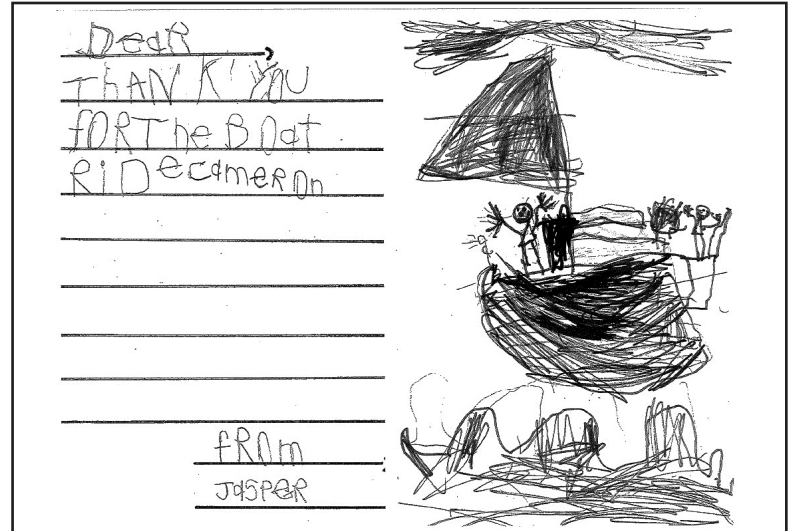 DeaR
ThANK YOU
fORThe BOat
RiDecameRon
fROm
JaSPeR